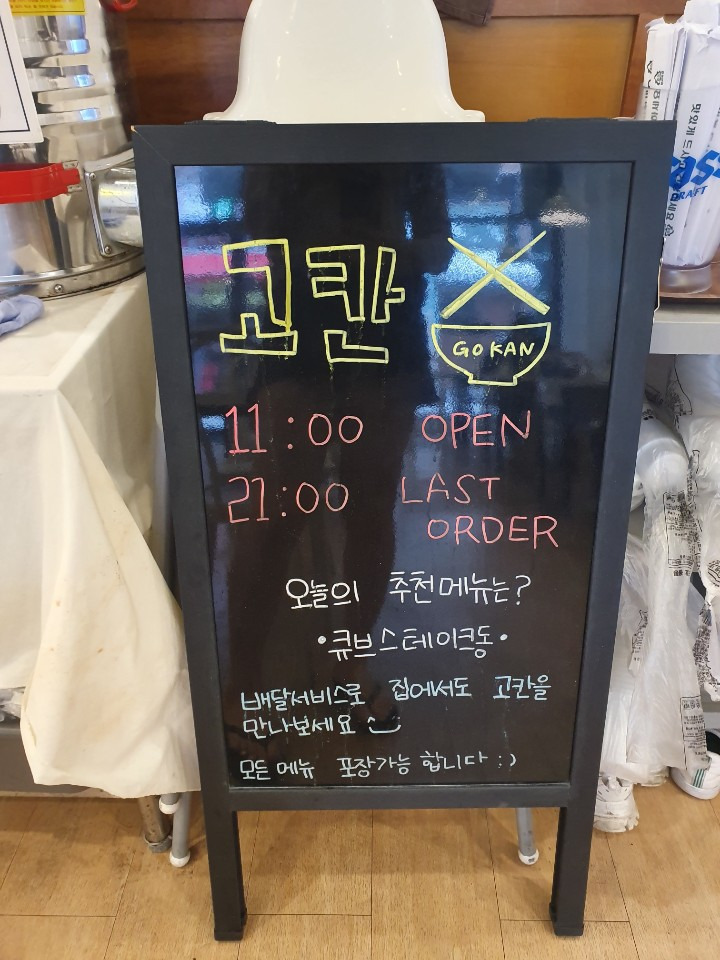 고칸
GO KAN
11:00 OPEN
21:00 LAST
ORDER
오늘의 추천메뉴는?
•큐브스테이크동•
배달서비스로 집에서도 고칸을
만나보세요
모든 메뉴 포장가능 합니다 :)
맛있게 드